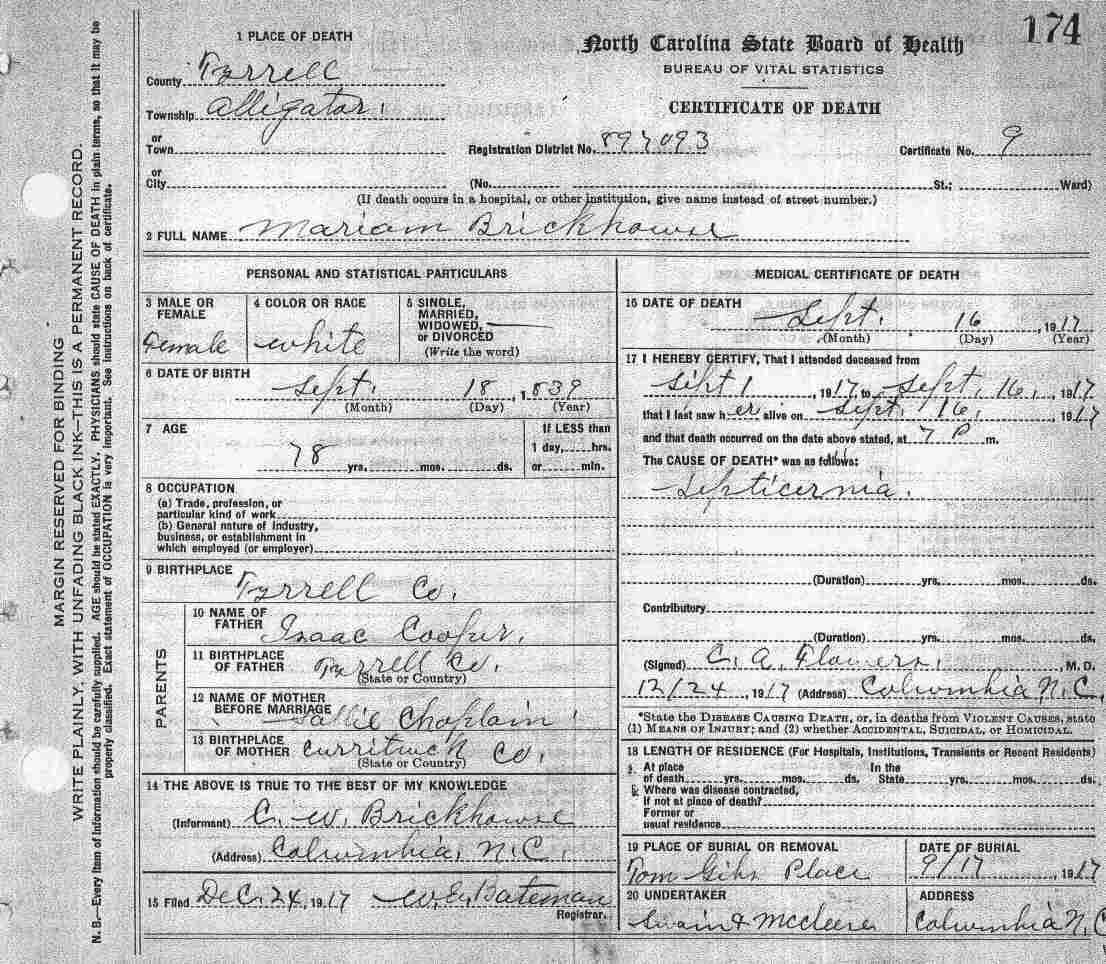 174
1 PLACE OF DEATH
North Carolina State Board of Health
BUREAU OF VITAL STATISTICS
CERTIFICATE OF DEATH
County Tyrrell
Township Alligator
or Town
Registration District No. 897093
Certificate No. 9
or City
(No. St.; Ward)
(If death occurs in a hospital, or other institution, give name instead of street number.)
2 FULL NAME Mariam Brickhouse
PERSONAL AND STATISTICAL PARTICULARS
3 MALE OR FEMALE
Female
4 COLOR OR RACE
White
5 SINGLE, MARRIED, WIDOWED, or DIVORCED
(Write the word)
6 DATE OF BIRTH
Sept. 18, 1839
(Month) (Day) (Year)
7 AGE
78 yrs. mos. ds.
If LESS than
1 day, hrs.
or min.
8 OCCUPATION
(a) Trade, profession, or
particular kind of work
(b) General nature of industry,
business, or establishment in
which employed (or employer)
9 BIRTHPLACE
Tyrrell Co.
PARENTS
10 NAME OF FATHER
Isaac Cooper.
11 BIRTHPLACE OF FATHER
Tyrrell Co.
(State or Country)
12 NAME OF MOTHER BEFORE MARRIAGE
Sallie Choplain
13 BIRTHPLACE OF MOTHER
Currituck Co.
(State or Country)
14 THE ABOVE IS TRUE TO THE BEST OF MY KNOWLEDGE
(Informant) C. W. Brickhouse
(Address) Columbia, N.C.
15 Filed Dec. 24, 1917 W.E. Bateman
Registrar.
MEDICAL CERTIFICATE OF DEATH
16 DATE OF DEATH
Sept. 16, 1917
(Month) (Day) (Year)
17 I HEREBY CERTIFY, That I attended deceased from
Sept 1, 1917, to Sept. 16, 1917
that I last saw her alive on Sept. 16, 1917
and that death occurred on the date above stated, at 7 P m.
The CAUSE OF DEATH* was as follows:
Septicemia.
(Duration) yrs. mos. ds.
Contributory
(Duration) yrs. mos. ds.
(Signed) C. A. Flowers, M. D.
12/24, 1917 (Address) Columbia N.C.
*State the DISEASE CAUSING DEATH, or, in deaths from VIOLENT CAUSES, state
(1) MEANS OF INJURY; and (2) whether ACCIDENTAL, SUICIDAL, or HOMICIDAL.
18 LENGTH OF RESIDENCE (For Hospitals, Institutions, Transients or Recent Residents)
At place In the
of death yrs. mos. ds. State yrs. mos. ds.
Where was disease contracted,
if not at place of death?
Former or
usual residence
19 PLACE OF BURIAL OR REMOVAL
Tom Place
DATE OF BURIAL
9/17 1917
20 UNDERTAKER
Swain &
ADDRESS
Columbia N.C
MARGIN RESERVED FOR BINDING
WRITE PLAINLY, WITH UNFADING BLACK INK—THIS IS A PERMANENT RECORD.
N. B.—Every item of information should be carefully supplied. AGE should be stated EXACTLY. PHYSICIANS should state CAUSE OF DEATH in plain terms, so that it may be
properly classified. Exact statement of OCCUPATION is very important. See instructions on back of certificate.